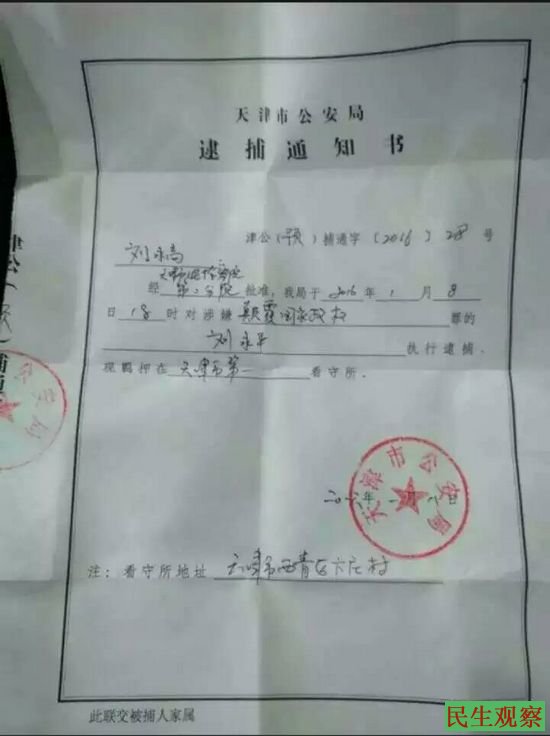 天津市公安局
逮捕通知书
津公(预)捕通字〔2016〕28号
刘永
天津市人民检察院
经第一分院批准,我局于2016年1月8
日18时对涉嫌颠覆国家政权罪的
刘永平执行逮捕,
现羁押在天津市第一看守所。
二〇一六年
天津市公安局
注:看守所地址 天津市西青区
此联交被捕人家属
津公
捕通
公安局
民生观察